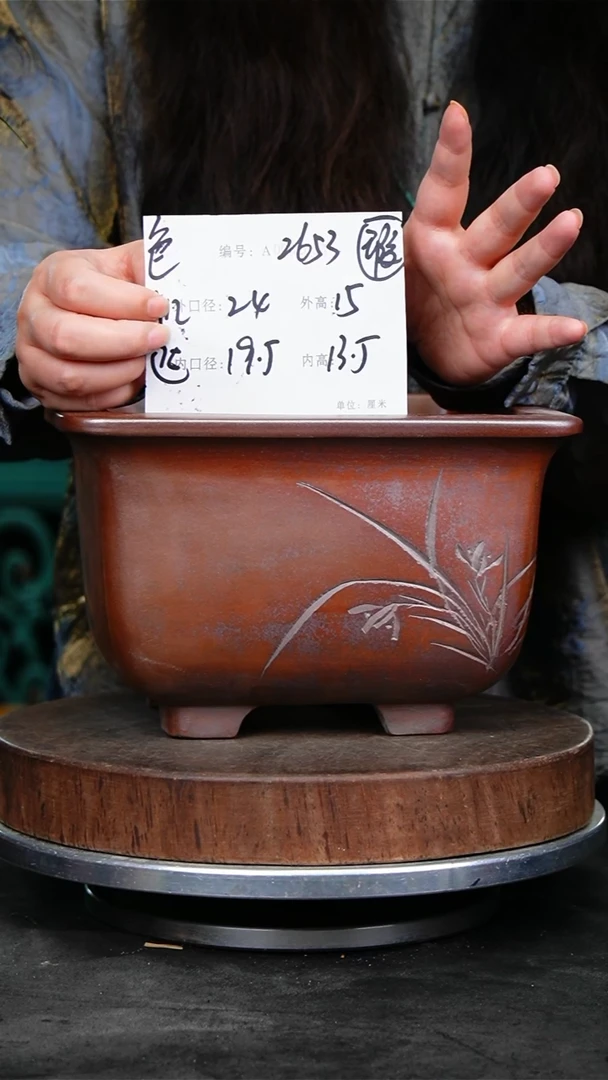 色 编号: A 2653
外口径: 24 外高: 15
内口径: 19.5 内高: 13.5
单位: 厘米